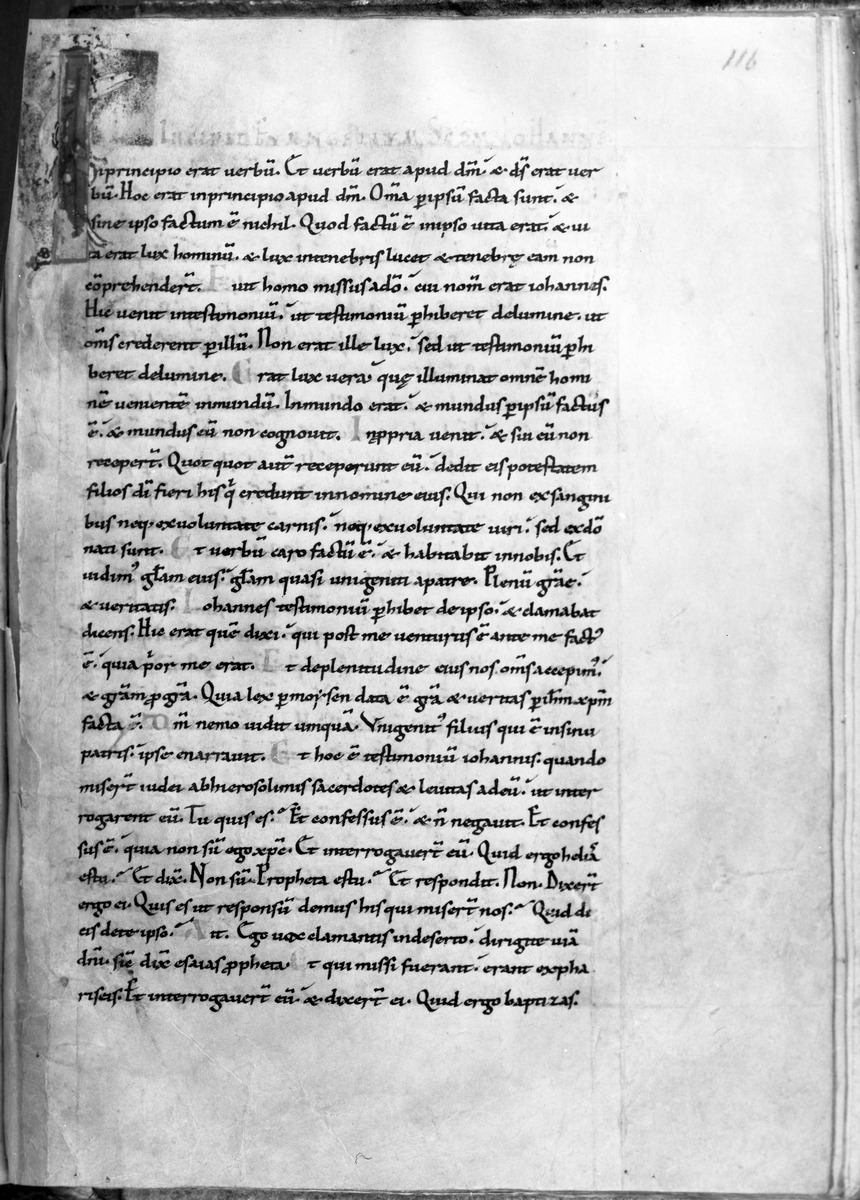 116
Inprincipio erat uerbū. Et uerbū erat apud dm̄. & ds̄ erat uer
bū. Hoc erat inprincipio apud dm̄. Om̄a ꝑipsū facta sunt. &
sine ipso factum ē nichil. Quod factū ē inipso uita erat. & ui
ta erat lux hominū. & lux intenebris lucet & tenebrę eam non
cōprehendert̄. Fuit homo missus adō. cui nom̄ erat iohannes.
Hic uenit intestimoniū. ut testimoniū ꝑhiberet delumine. ut
om̄s crederent ꝑillū. Non erat ille lux. sed ut testimoniū ꝑhi
beret delumine. Erat lux uera quę illuminat omnē homi
nē uenientē inmundū. Inmundo erat. & mundus ꝑipsū factus
ē. & mundus eū non cognouit. Inꝓpria uenit. & sui eū non
recepert̄. Quot quot aut̄ receperunt eū. dedit eis potestatem
filios dī fieri his q̄ credunt innomine eius. Qui non exsangini
bus neq; exuoluntate carnis. neq; exuoluntate uiri. sed exdō
nati sunt. Et uerbū caro factū ē. & habitabit innobis. Et
uidim᾿ gl̄am eius. gl̄am quasi unigeniti apatre. Plenū grāe.
& ueritatis. Iohannes testimoniū ꝑhibet deipso. & clamabat
dicens. Hic erat quē dixi. qui post me uenturus ē ante me fact᾿
ē. quia p̄or me erat. Et deplenitudine eius nos om̄s accepim᾿.
& grām ꝓ grā. Quia lex ꝑmoysen data ē grā & ueritas ꝑ ih̄m xp̄m
facta ē. Dm̄ nemo uidit umquā. Vnigenit᾿ filius qui ē insinu
patris. ipse enarrauit. Et hoc ē testimoniū iohannis. quando
misert̄ iudei abhierosolimis sacerdotes & leuitas adeū. ut inter
rogarent eū. Tu quis es. Et confessus ē. & n̄ negauit. Et confes
sus ē. quia non sū ego xp̄c. Et interrogauert̄ eū. Quid ergo heliā
estu. Et dix̄. Non sū. Propheta estu. Et respondit. Non. Dixert̄
ergo ei. Quis es ut responsū demus his qui misert̄ nos. Quid di
cis dete ipso. Ait. Ego uox clamantis indeserto. dirigite uiā
dn̄i. sic̄ dix̄ esaias ꝓpheta. Et qui missi fuerant. erant expha
riseis. Et interrogauert̄ eū. & dixert̄ ei. Quid ergo baptizas.